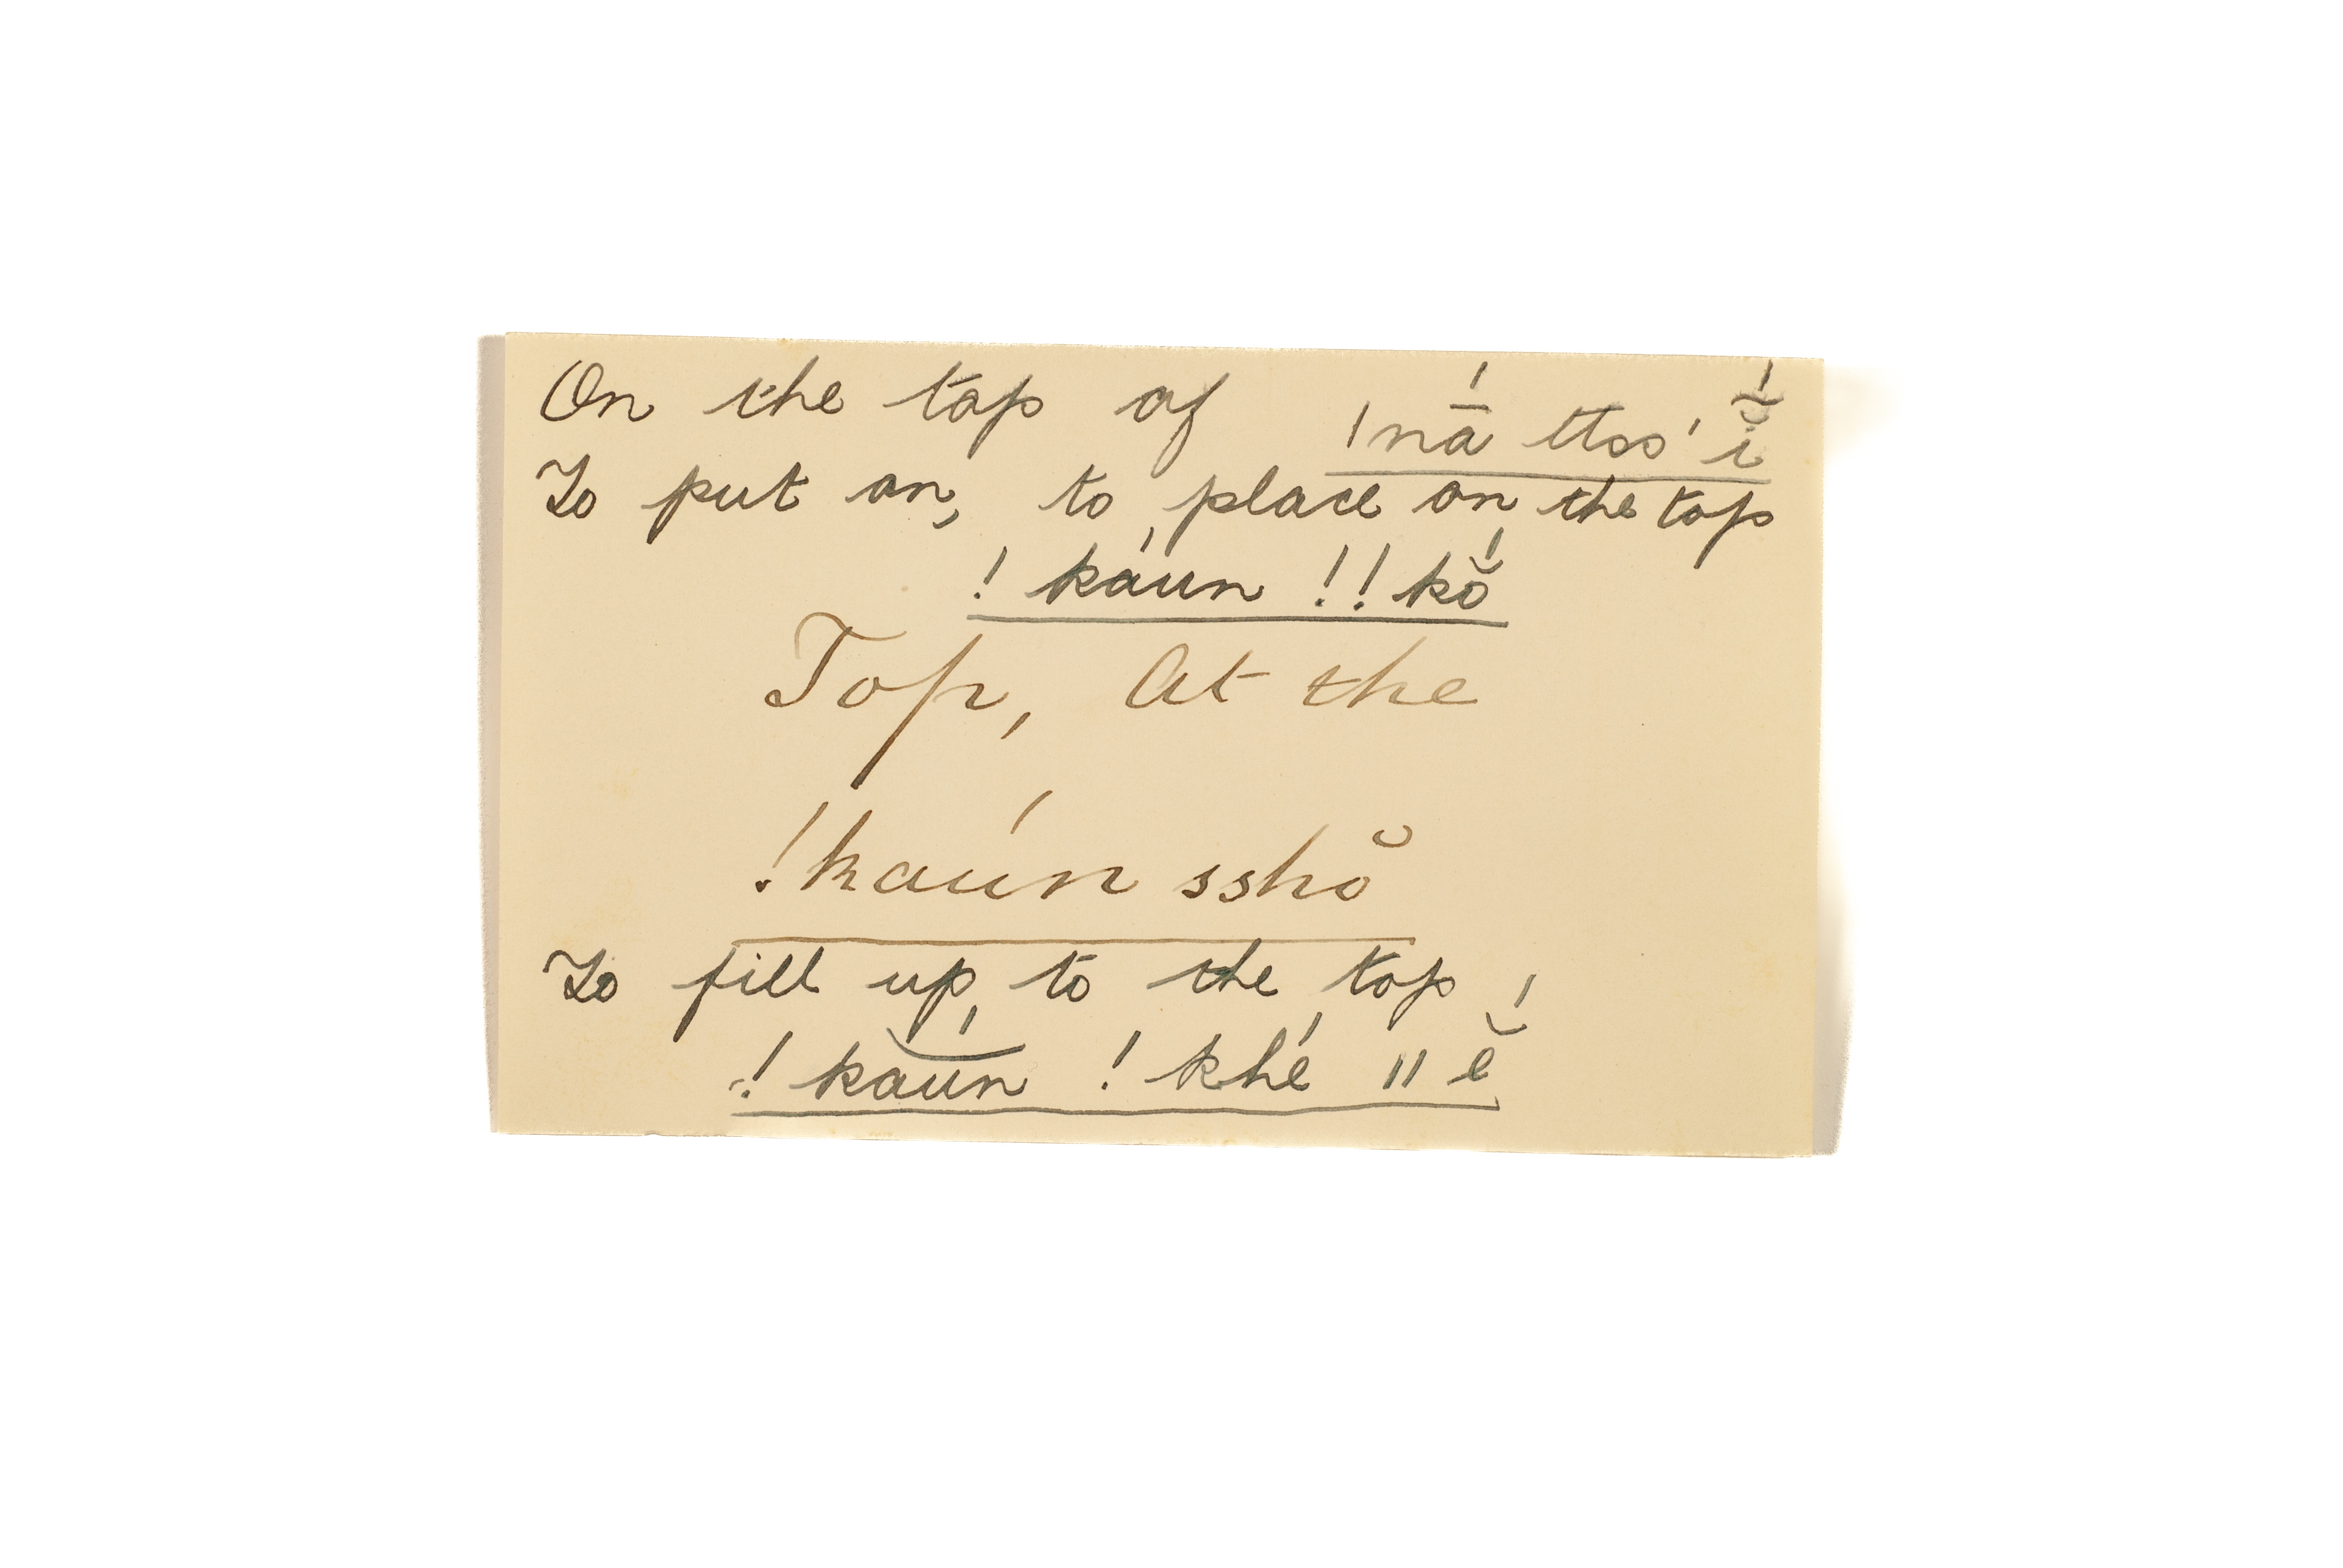 On the top of ǀnā́ ttss'ĭ̄́
To put on, to place on the top
! káun !! kŏ́
Top, At the
!kaún sshŏ
To fill up to the top
! kaún ! khé ǁ ĕ́